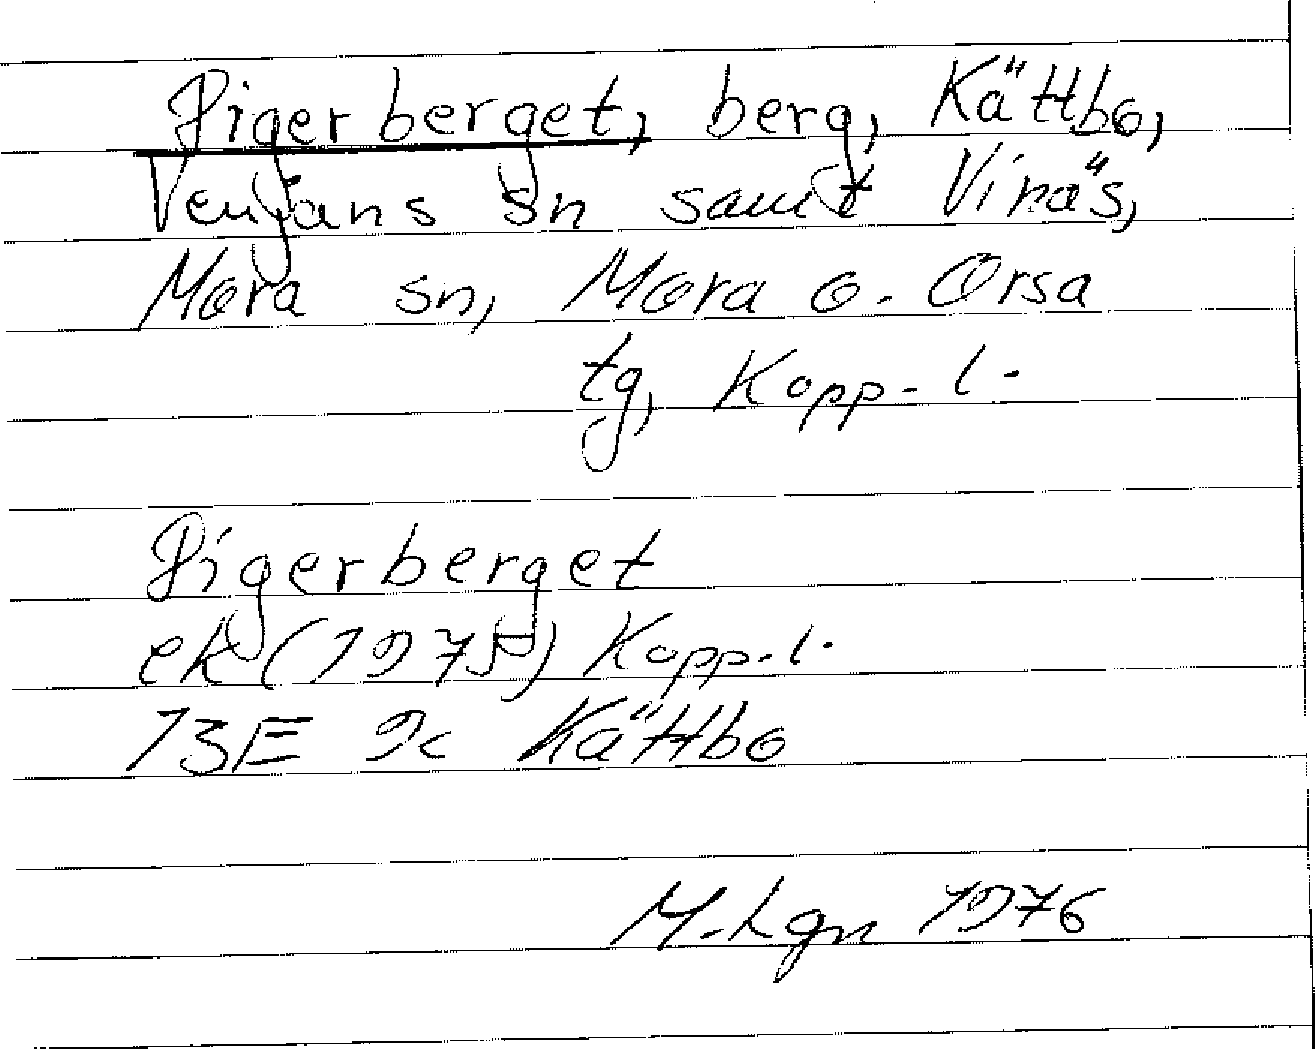 Pigerberget, berg, Kättbo,
Venjans sn samt Vinäs,
Mora sn, Mora o. Orsa
tg, Kopp. l.
Pigerberget
ek (1975) Kopp. l.
13E 9c Kättbo
M. Lgn 1976